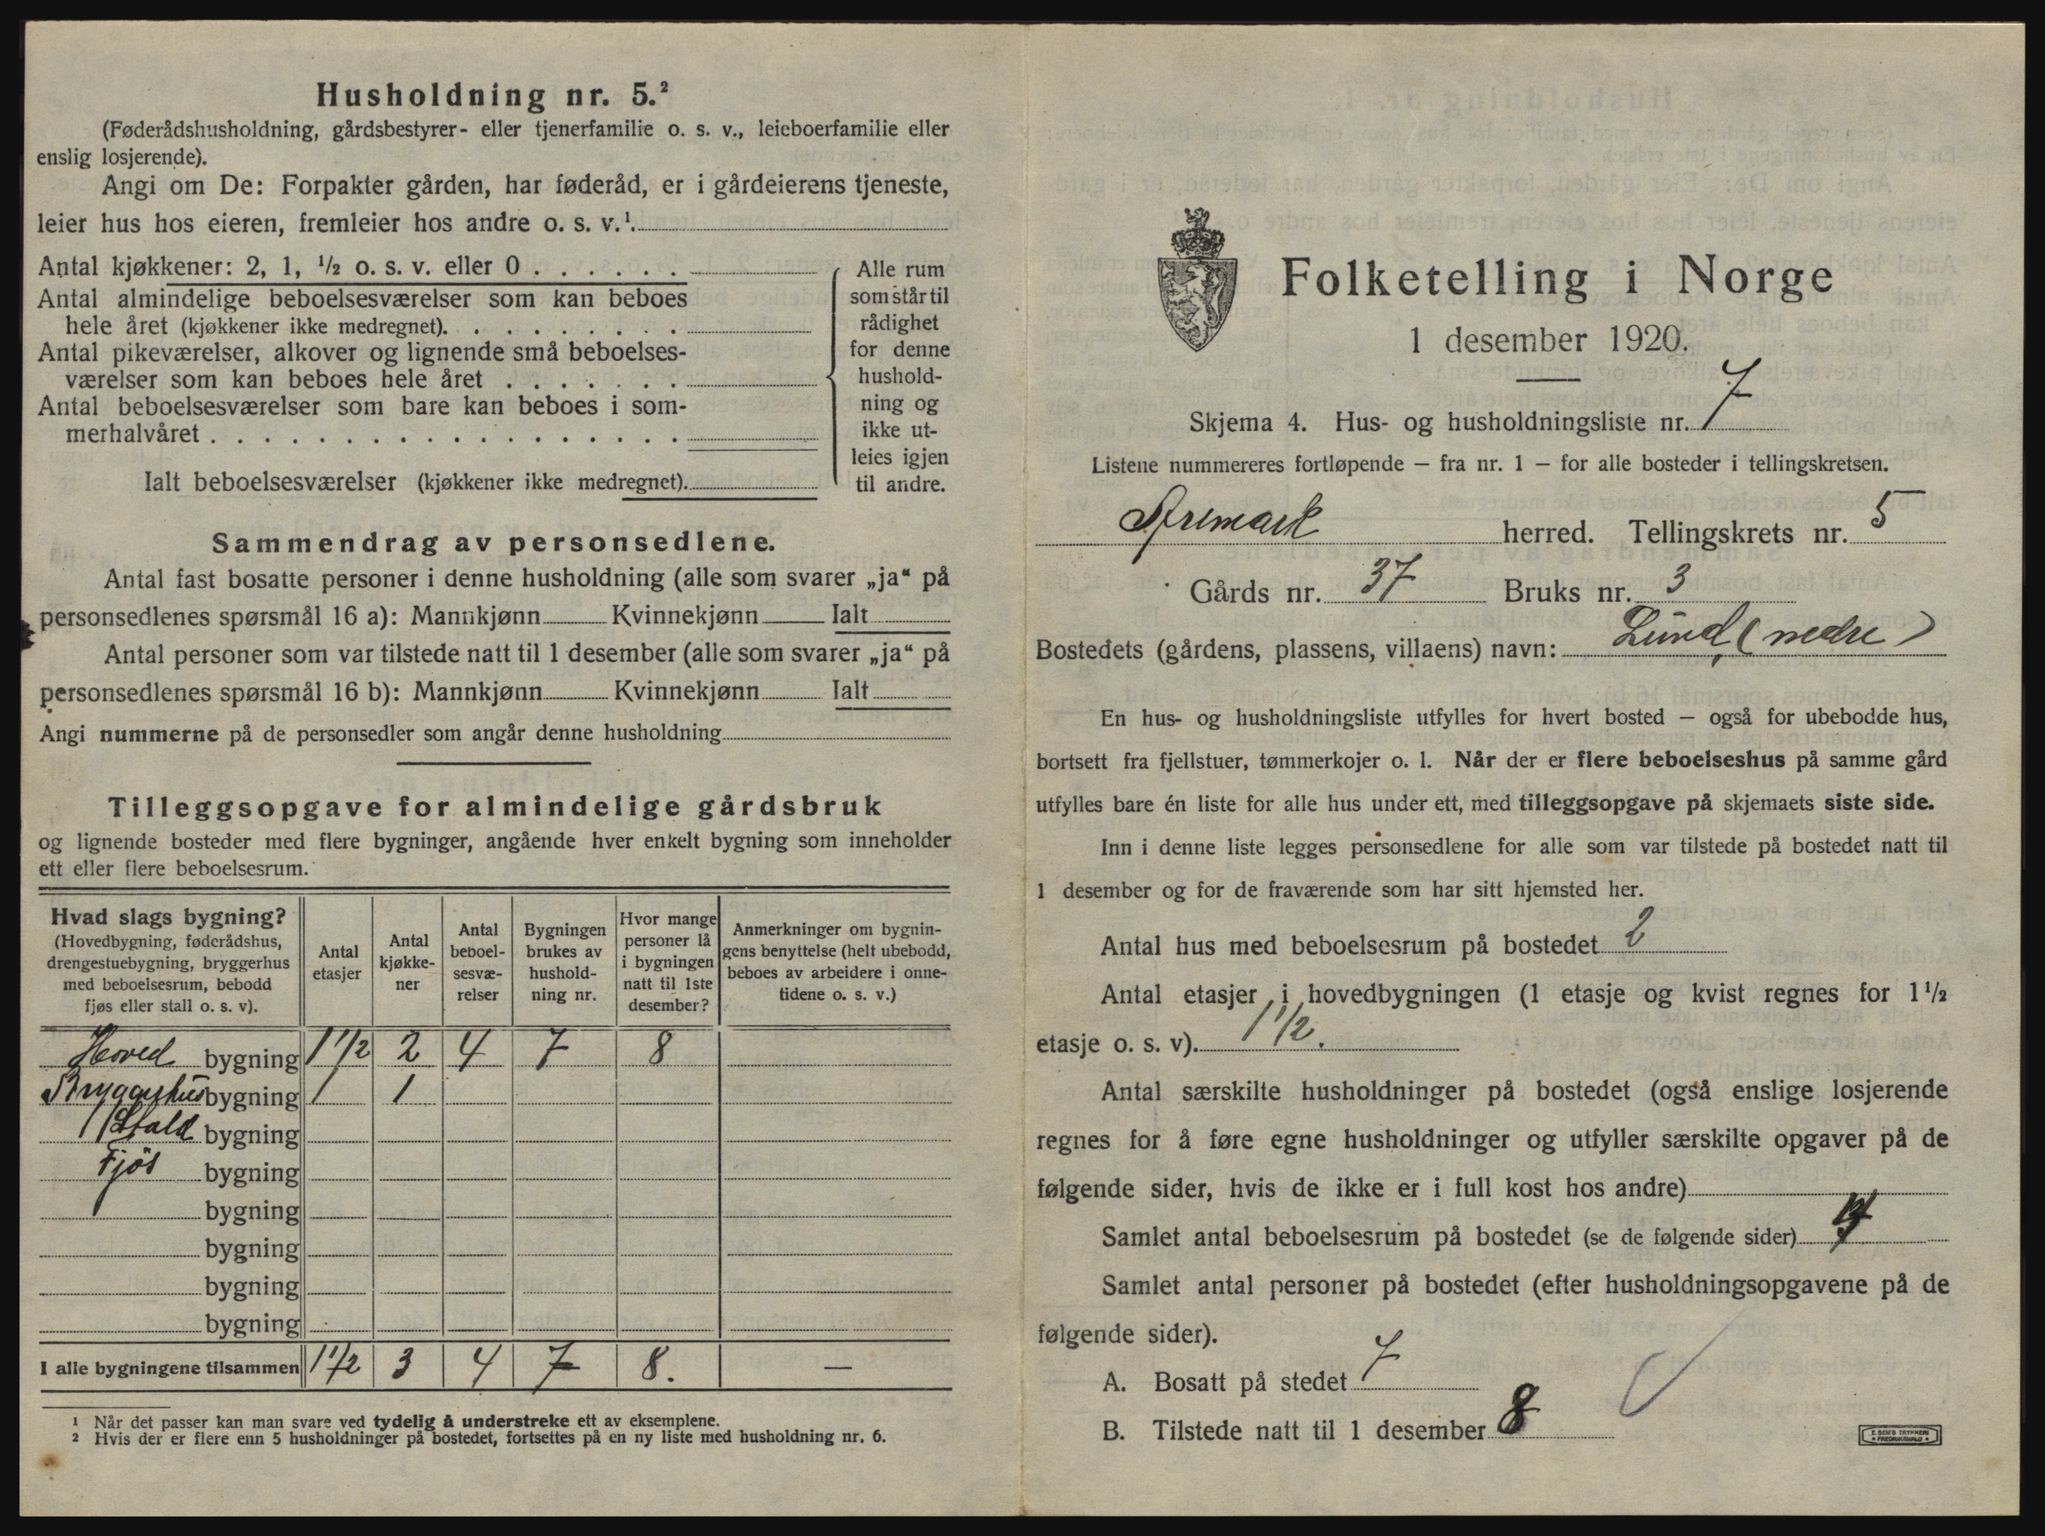 Husholdning nr. 5.²
(Føderådshusholdning, gårdsbestyrer- eller tjenerfamilie o. s. v., leieboerfamilie eller
enslig losjerende).
Angi om De: Forpakter gården, har føderåd, er i gårdeierens tjeneste,
leier hus hos eieren, fremleier hos andre o. s. v.¹.
Antal kjøkkener: 2, 1, ½ o. s. v. eller 0 . . . . . .
Antal almindelige beboelsesværelser som kan beboes
hele året (kjøkkener ikke medregnet). . . . . . . . .
Antal pikeværelser, alkover og lignende små beboelses-
værelser som kan beboes hele året . . . . . . .
Antal beboelsesværelser som bare kan beboes i som-
merhalvåret . . . . . . . . . . . . . . . . . .
Ialt beboelsesværelser (kjøkkener ikke medregnet).
Alle rum
som står til
rådighet
for denne
hushold-
ning og
ikke ut-
leies igjen
til andre.
Sammendrag av personsedlene.
Antal fast bosatte personer i denne husholdning (alle som svarer „ja“ på
personsedlenes spørsmål 16 a): Mannkjønn Kvinnekjønn Ialt
Antal personer som var tilstede natt til 1 desember (alle som svarer „ja“ på
personsedlenes spørsmål 16 b): Mannkjønn Kvinnekjønn Ialt
Angi nummerne på de personsedler som angår denne husholdning
Tilleggsopgave for almindelige gårdsbruk
og lignende bosteder med flere bygninger, angående hver enkelt bygning som inneholder
ett eller flere beboelsesrum.
Hvad slags bygning?
(Hovedbygning, føderådshus,
drengestuebygning, bryggerhus
med beboelsesrum, bebodd
fjøs eller stall o. s. v).
Antal
etasjer
Antal
kjøkke-
ner
Antal
beboel-
sesvæ-
relser
Bygningen
brukes av
hushold-
ning nr.
Hvor mange
personer lå
i bygningen
natt til 1ste
desember?
Anmerkninger om bygnin-
gens benyttelse (helt ubebodd,
beboes av arbeidere i onne-
tidene o. s. v.)
Hoved bygning 1 1/2 2 4 7 8
Bryggerhus bygning 1 1
Stald bygning
Fjøs bygning
bygning
bygning
bygning
bygning
I alle bygningene tilsammen 1 1/2 3 4 7 8. —
¹ Når det passer kan man svare ved tydelig å understreke ett av eksemplene.
² Hvis der er flere enn 5 husholdninger på bostedet, fortsettes på en ny liste med husholdning nr. 6.
Folketelling i Norge
1 desember 1920.
Skjema 4. Hus- og husholdningsliste nr. 7
Listene nummereres fortløpende — fra nr. 1 — for alle bosteder i tellingskretsen.
Aremark herred. Tellingskrets nr. 5
Gårds nr. 37 Bruks nr. 3
Bostedets (gårdens, plassens, villaens) navn: Lund (nedre)
En hus- og husholdningsliste utfylles for hvert bosted — også for ubebodde hus,
bortsett fra fjellstuer, tømmerkojer o. l. Når der er flere beboelseshus på samme gård
utfylles bare én liste for alle hus under ett, med tilleggsopgave på skjemaets siste side.
Inn i denne liste legges personsedlene for alle som var tilstede på bostedet natt til
1 desember og for de fraværende som har sitt hjemsted her.
Antal hus med beboelsesrum på bostedet 2
Antal etasjer i hovedbygningen (1 etasje og kvist regnes for 1½
etasje o. s. v). 1 1/2.
Antal særskilte husholdninger på bostedet (også enslige losjerende
regnes for å føre egne husholdninger og utfyller særskilte opgaver på de
følgende sider, hvis de ikke er i full kost hos andre)
Samlet antal beboelsesrum på bostedet (se de følgende sider)
Samlet antal personer på bostedet (efter husholdningsopgavene på de
følgende sider).
A. Bosatt på stedet 7
B. Tilstede natt til 1 desember 8